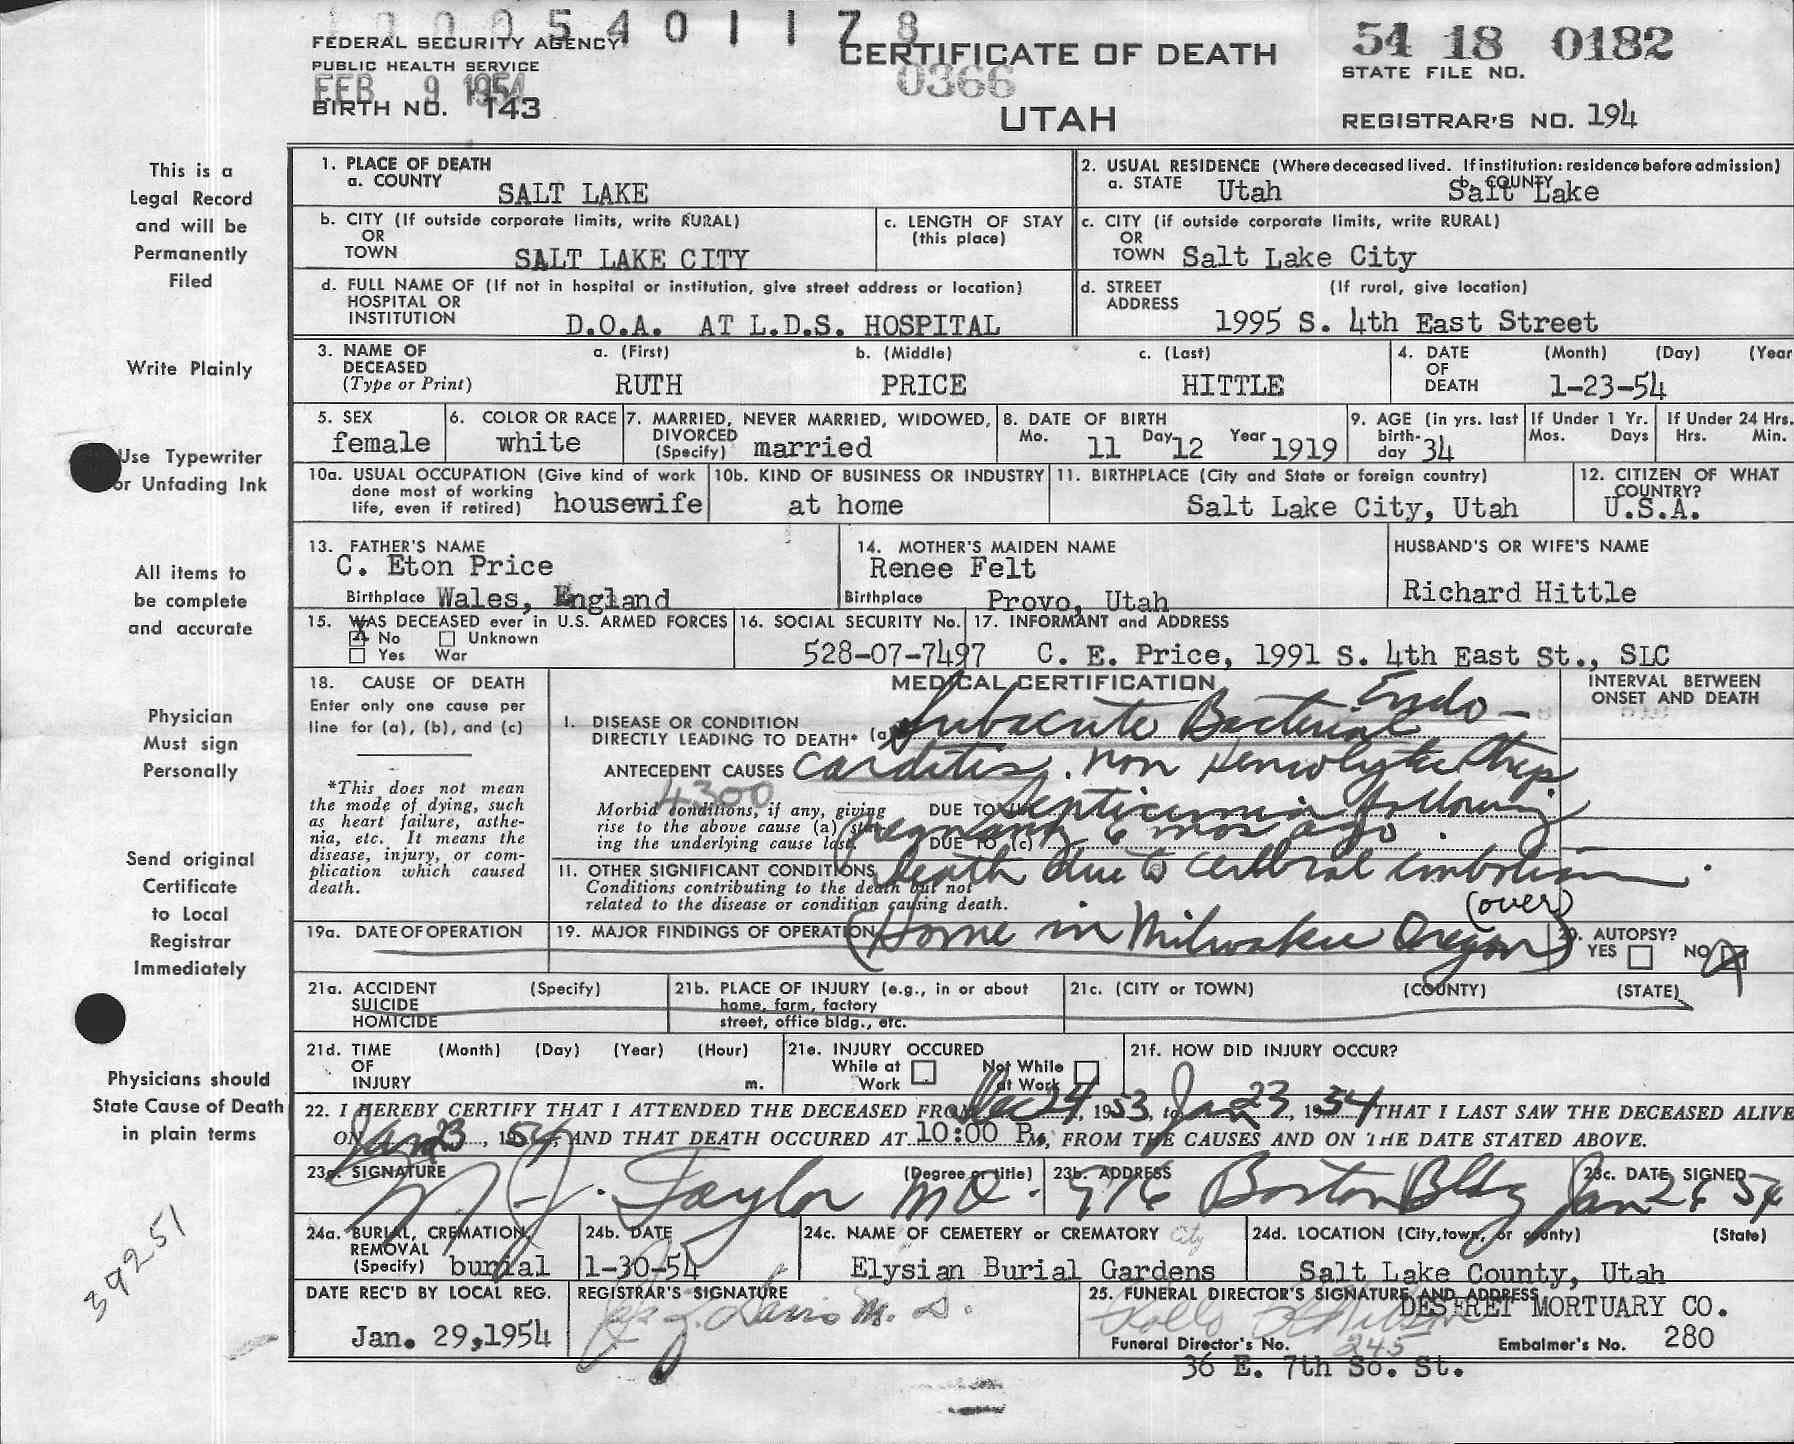 1 0 0 0 5 4 0 1 1 7 8
FEDERAL SECURITY AGENCY
PUBLIC HEALTH SERVICE
FEB 9 1954
BIRTH NO. 143
CERTIFICATE OF DEATH
0366
UTAH
54 18 0182
STATE FILE NO.
REGISTRAR'S NO. 194
This is a
Legal Record
and will be
Permanently
Filed
Write Plainly
Use Typewriter
or Unfading Ink
All items to
be complete
and accurate
Physician
Must sign
Personally
Send original
Certificate
to Local
Registrar
Immediately
Physicians should
State Cause of Death
in plain terms
39251
1. PLACE OF DEATH
a. COUNTY SALT LAKE
2. USUAL RESIDENCE (Where deceased lived. If institution: residence before admission)
a. STATE Utah b. COUNTY Salt Lake
b. CITY (If outside corporate limits, write RURAL)
OR
TOWN SALT LAKE CITY
c. LENGTH OF STAY
(this place)
c. CITY (if outside corporate limits, write RURAL)
OR
TOWN Salt Lake City
d. FULL NAME OF (If not in hospital or institution, give street address or location)
HOSPITAL OR
INSTITUTION D.O.A. AT L.D.S. HOSPITAL
d. STREET (If rural, give location)
ADDRESS
1995 S. 4th East Street
3. NAME OF DECEASED (Type or Print)
a. (First) RUTH
b. (Middle) PRICE
c. (Last) HITTLE
4. DATE OF DEATH (Month) (Day) (Year
1-23-54
5. SEX
female
6. COLOR OR RACE
white
7. MARRIED, NEVER MARRIED, WIDOWED,
DIVORCED (Specify) married
8. DATE OF BIRTH
Mo. 11 Day 12 Year 1919
9. AGE (in yrs. last
birth-
day 34
If Under 1 Yr.
Mos. Days
If Under 24 Hrs.
Hrs. Min.
10a. USUAL OCCUPATION (Give kind of work
done most of working
life, even if retired) housewife
10b. KIND OF BUSINESS OR INDUSTRY
at home
11. BIRTHPLACE (City and State or foreign country)
Salt Lake City, Utah
12. CITIZEN OF WHAT
COUNTRY?
U.S.A.
13. FATHER'S NAME
C. Eton Price
Birthplace Wales, England
14. MOTHER'S MAIDEN NAME
Renee Felt
Birthplace Provo, Utah
HUSBAND'S OR WIFE'S NAME
Richard Hittle
15. WAS DECEASED ever in U.S. ARMED FORCES
X No Unknown
Yes War
16. SOCIAL SECURITY No.
528-07-7497
17. INFORMANT and ADDRESS
C. E. Price, 1991 S. 4th East St., SLC
18. CAUSE OF DEATH
Enter only one cause per
line for (a), (b), and (c)
*This does not mean
the mode of dying, such
as heart failure, asthe-
nia, etc. It means the
disease, injury, or com-
plication which caused
death.
MEDICAL CERTIFICATION
INTERVAL BETWEEN
ONSET AND DEATH
I. DISEASE OR CONDITION
DIRECTLY LEADING TO DEATH* (a) Subacute Bacterial Endo-
ANTECEDENT CAUSES carditis. Non Hemolytic Strep
4300
Morbid conditions, if any, giving
rise to the above cause (a) stat-
ing the underlying cause last.
DUE TO (b) Septicemia following
DUE TO (c) pregnancy 6 mos ago.
II. OTHER SIGNIFICANT CONDITIONS
Conditions contributing to the death but not
related to the disease or condition causing death.
Death due to cerebral embolism.
(over)
19a. DATE OF OPERATION
19. MAJOR FINDINGS OF OPERATION
(Home in Milwakee Oregon)
20. AUTOPSY?
YES NO X
21a. ACCIDENT (Specify)
SUICIDE
HOMICIDE
21b. PLACE OF INJURY (e.g., in or about
home, farm, factory
street, office bldg., etc.
21c. (CITY or TOWN) (COUNTY) (STATE)
21d. TIME (Month) (Day) (Year) (Hour)
OF
INJURY m.
21e. INJURY OCCURED
While at Work
Not While at Work
21f. HOW DID INJURY OCCUR?
22. I HEREBY CERTIFY THAT I ATTENDED THE DECEASED FROM Dec 24, 1953, to Jan 23, 1954 THAT I LAST SAW THE DECEASED ALIVE
ON Jan 23, 1954, AND THAT DEATH OCCURED AT 10:00 P.m., FROM THE CAUSES AND ON THE DATE STATED ABOVE.
23a. SIGNATURE (Degree or title)
N J. Taylor MD.
23b. ADDRESS
716 Boston Bldg
23c. DATE SIGNED
Jan 26 54
24a. BURIAL, CREMATION,
REMOVAL
(Specify) burial
24b. DATE
1-30-54
24c. NAME OF CEMETERY or CREMATORY City
Elysian Burial Gardens
24d. LOCATION (City, town, or county) (State)
Salt Lake County, Utah
DATE REC'D BY LOCAL REG.
Jan. 29,1954
REGISTRAR'S SIGNATURE
Davis M. D.
25. FUNERAL DIRECTOR'S SIGNATURE AND ADDRESS
DESERET MORTUARY CO.
Funeral Director's No. 245
Embalmer's No. 280
36 E. 7th So. St.